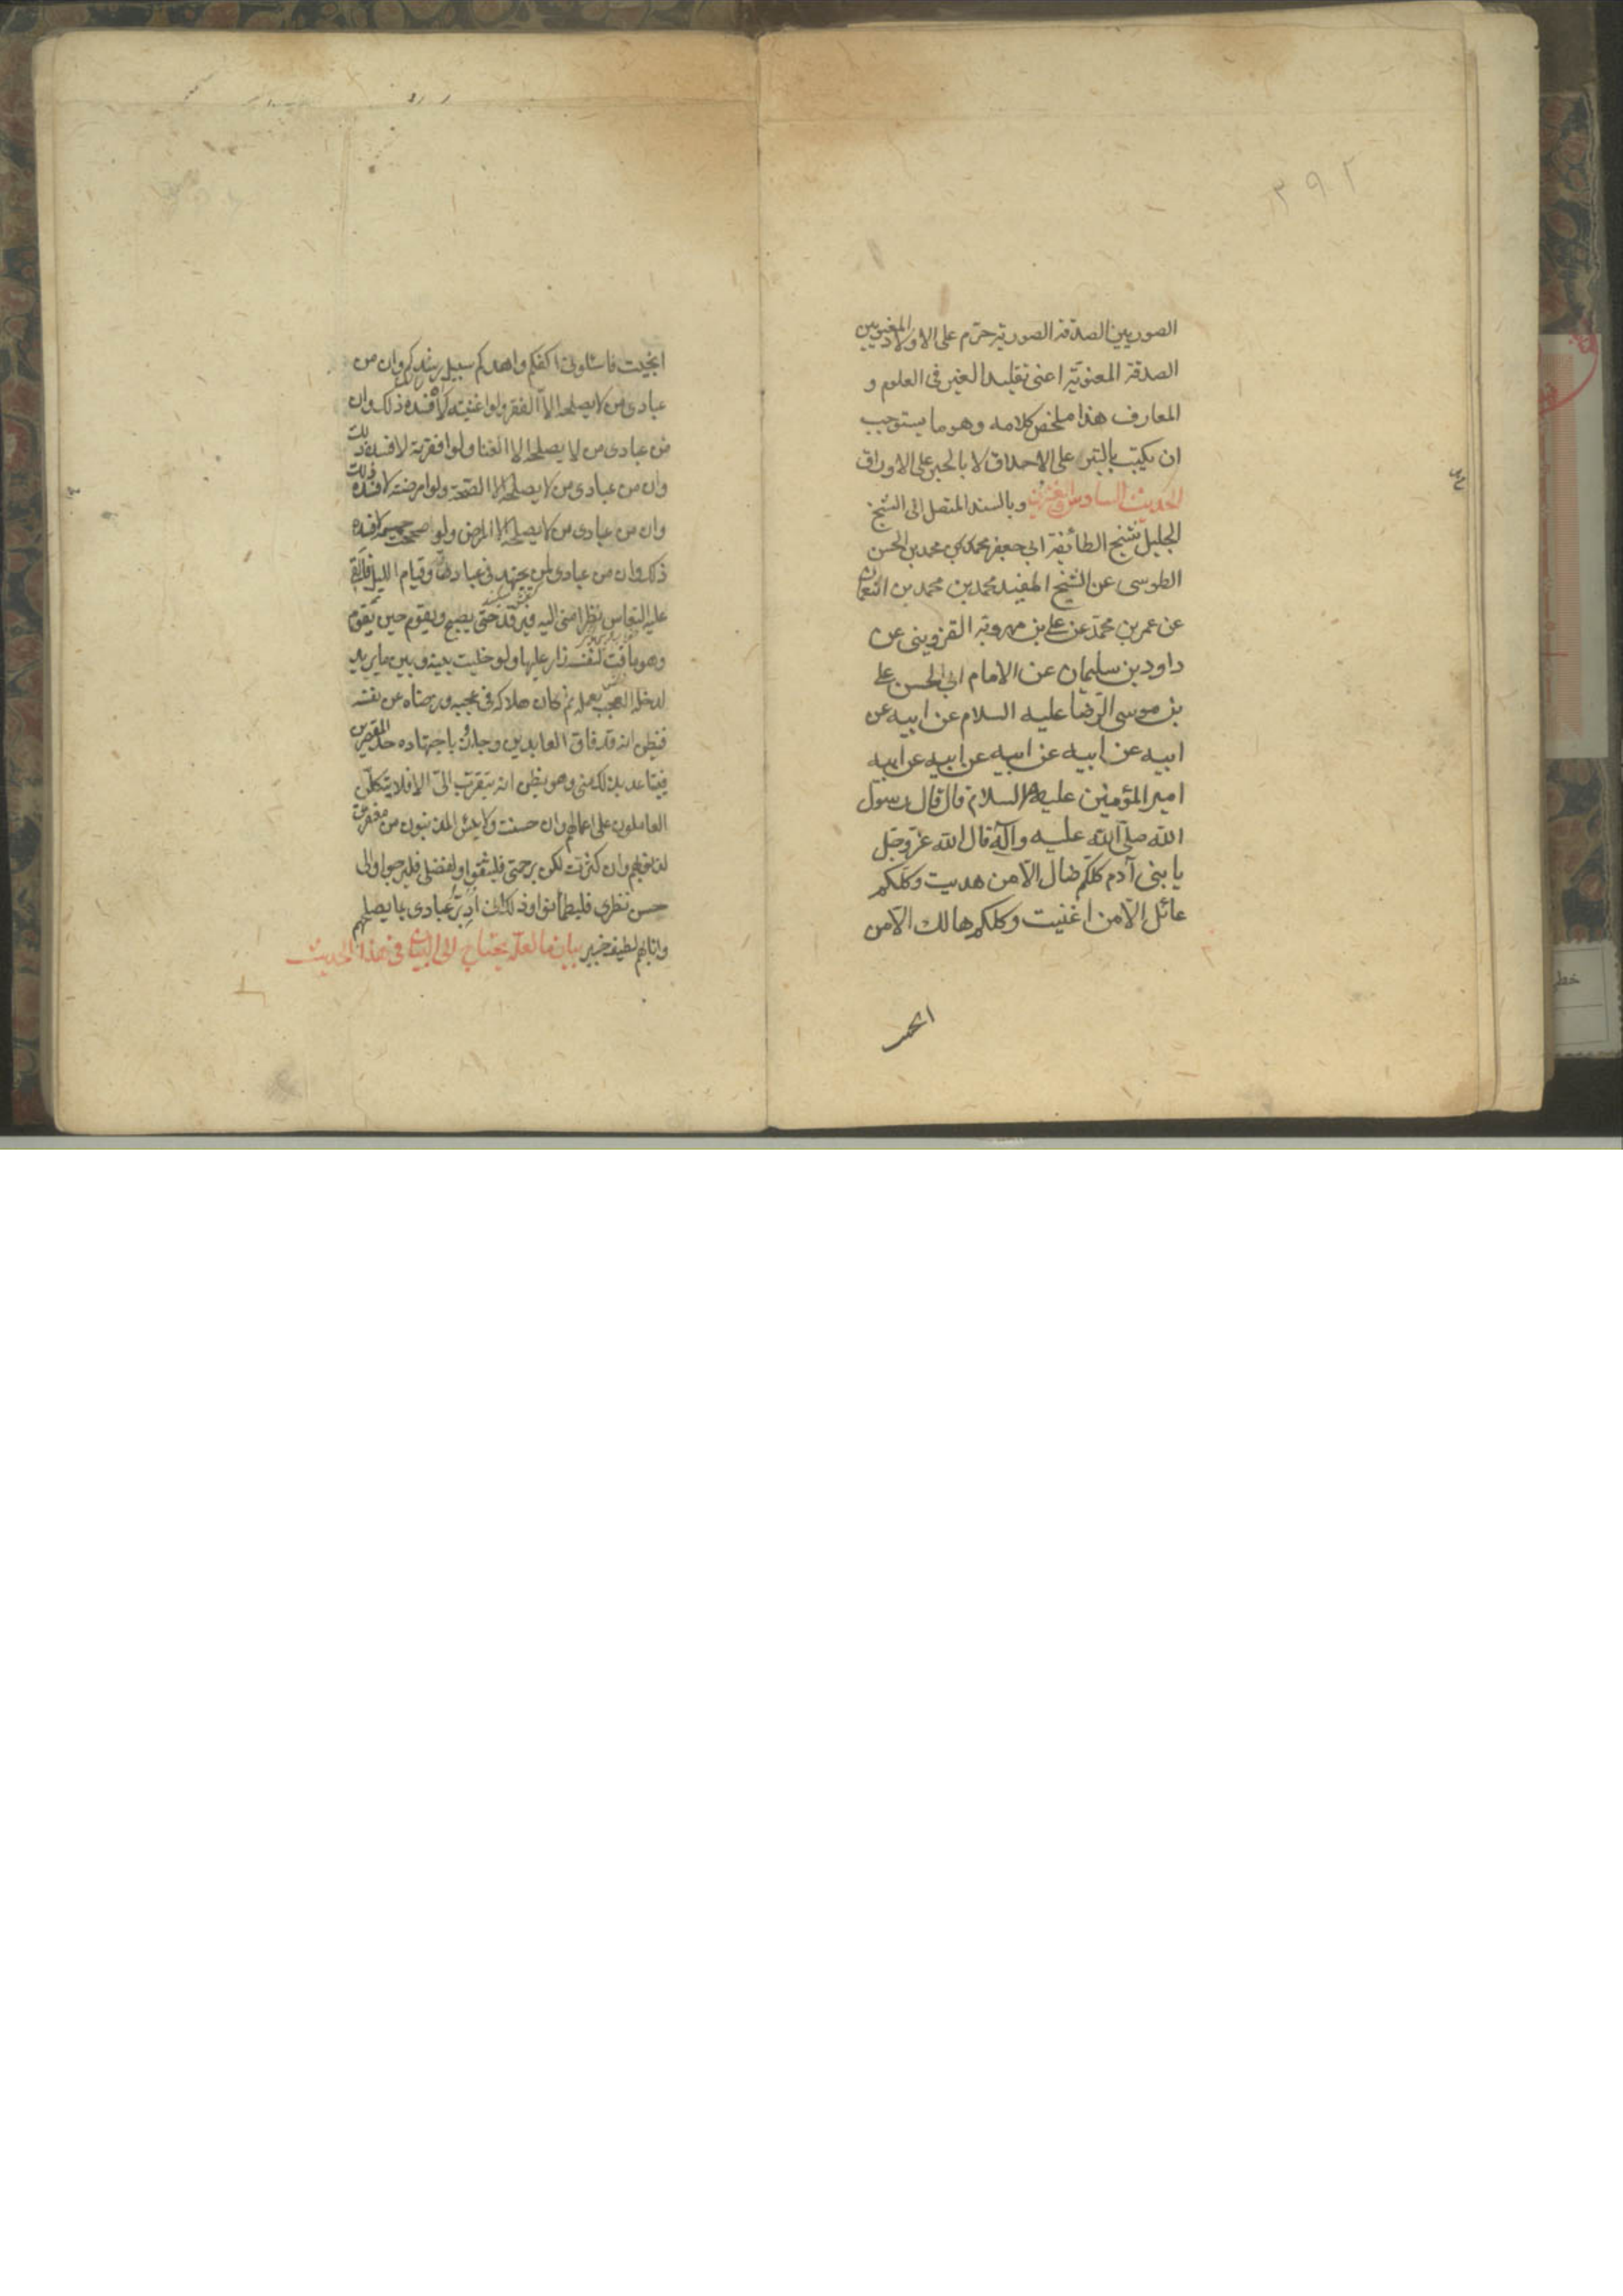 ٣٩٢
الصوريين الصدقة الصورية حرّم على الاولاد المعنويين
الصدقة المعنوية اعنى تقليد الغير فى العلوم و
المعارف هذا ملخص كلامه وهو ما يستوجب
ان يكتب بالتبر على الاحداق لا بالحبر على الاوراق
الحديث السادس والعشرون وبالسند المتصل الى الشيخ
الجليل شيخ الطائفة ابى جعفر محمد بن الحسن
الطوسى عن الشيخ المفيد محمد بن محمد بن النعمان
عن عمر بن محمد عن على بن مهرويه القزوينى عن
داود بن سليمان عن الامام ابى الحسن على
بن موسى الرضا عليه السلام عن ابيه عن
ابيه عن ابيه عن ابيه عن ابيه عن ابيه
امير المؤمنين عليهم السلام قال قال رسول
الله صلى الله عليه وآله قال الله عزّ وجلّ
يا بنى آدم كلكم ضال الّا من هديت وكلكم
عائل الّا من اغنيت وكلكم هالك الّا من
انجيت فاسئلونى اكفكم واهدكم سبيل رشدكم وان من
عبادى من لا يصلحه الا الفقر ولو اغنيته لافسده ذلك وان
من عبادى من لا يصلحه الا الغنا ولو افقرته لافسده ذلك
وان من عبادى من لا يصلحه الا الصّحة ولو امرضته لافسده ذلك
وان من عبادى من لا يصلحه الا المرض ولو صححت جسمه لافسده
ذلك وان من عبادى لمن يجتهد فى عبادتى وقيام الليل فالقى
عليه النعاس نظرا منى اليه فيرقد حتى يصبح ويقوم حين يقوم
وهو ماقت لنفسه زار عليها ولو خليت بينه وبين ما يريد
لدخله العجب بعمله ثم كان هلاكه فى عجبه ورضاه عن نفسه
فيظن انه قد فاق العابدين وجاز باجتهاده حد المقصرين
فيتباعد بذلك منى وهو يظن انه يتقرب الىّ الا فلا يتكلن
العاملون على اعمالهم وان حسنت ولا ييئس المذنبون من مغفرتى
لذنوبهم وان كثرت لكن برحمتى فليثقوا ولفضلى فليرجوا والى
حسن نظرى فليطمئنوا وذلك انى ادبّر عبادى بما يصلحهم
وانا بهم لطيف خبير بيان ما لعله يحتاج الى البيان فى هذا الحديث